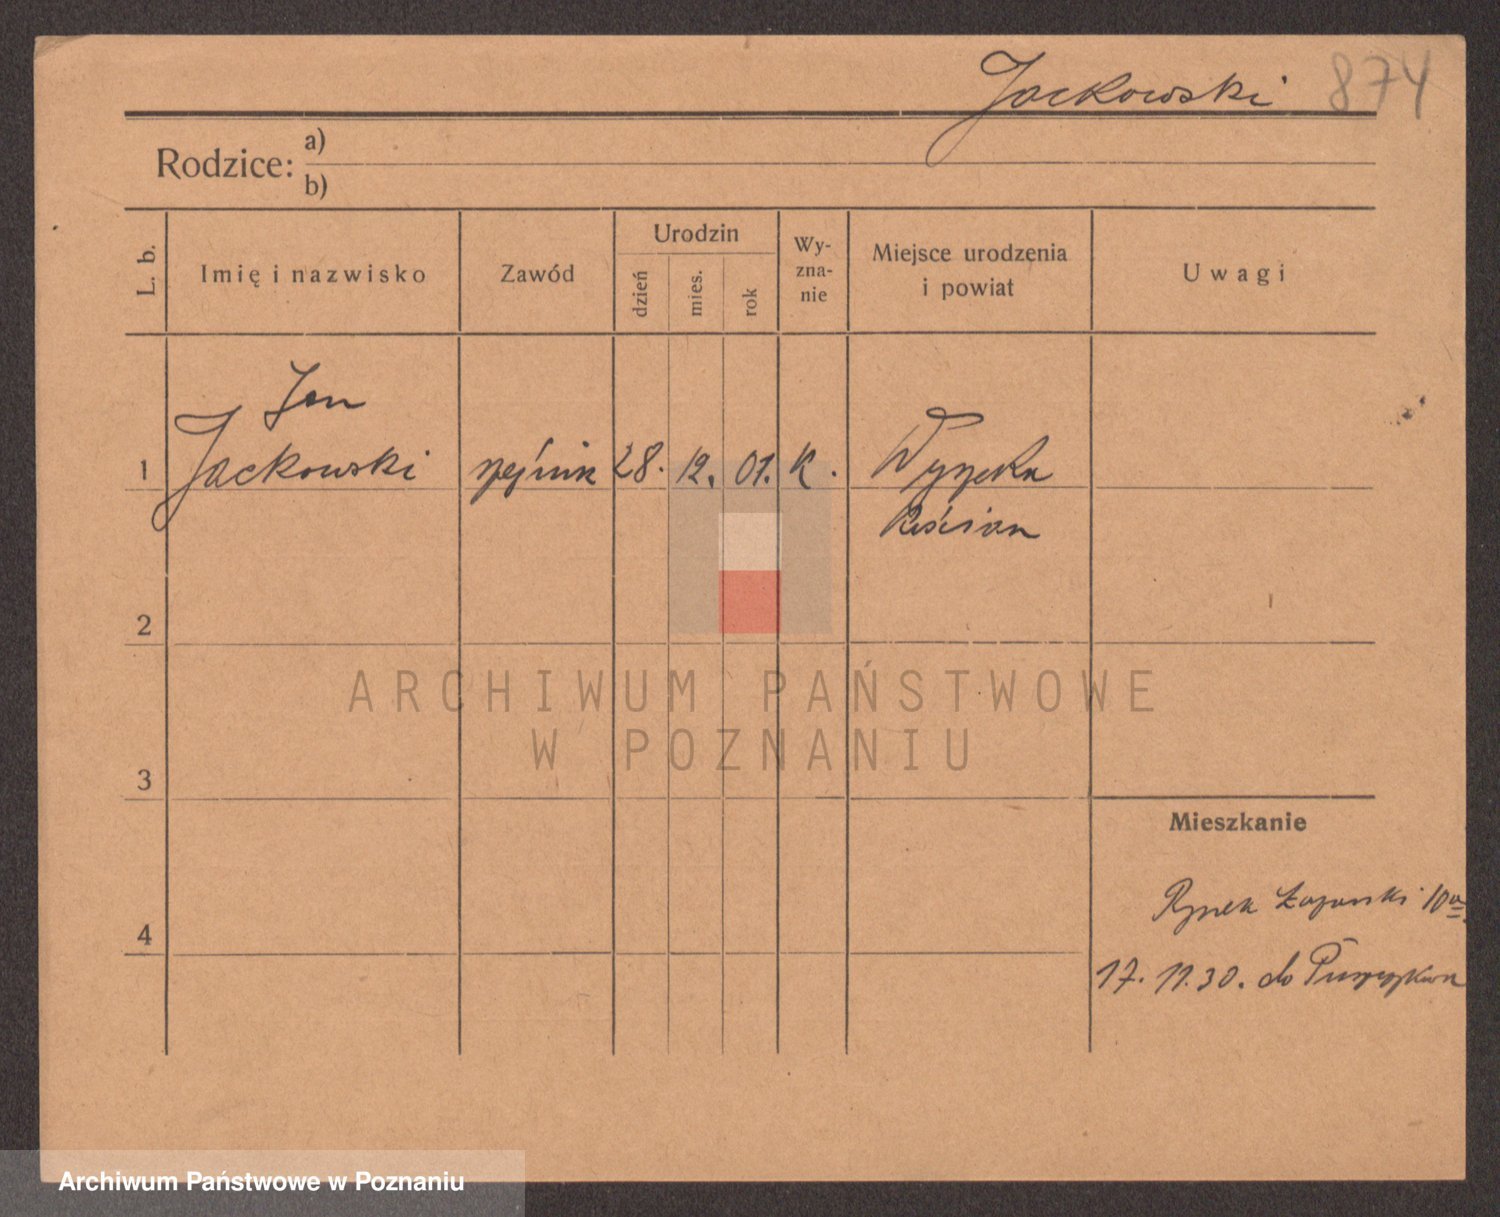 Jackowski 874
Rodzice: a)
b)
L. b.
Imię i nazwisko
Zawód
Urodzin
dzień
mies.
rok
Wy-
zna-
nie
Miejsce urodzenia
i powiat
Uwagi
Jan
1 Jackowski 28. 12. 01. K.
Kościan
2
3
4
Mieszkanie
Rynek Łazarski 10a
17. 11. 30. do
ARCHIWUM PAŃSTWOWE
W POZNANIU
Archiwum Państwowe w Poznaniu